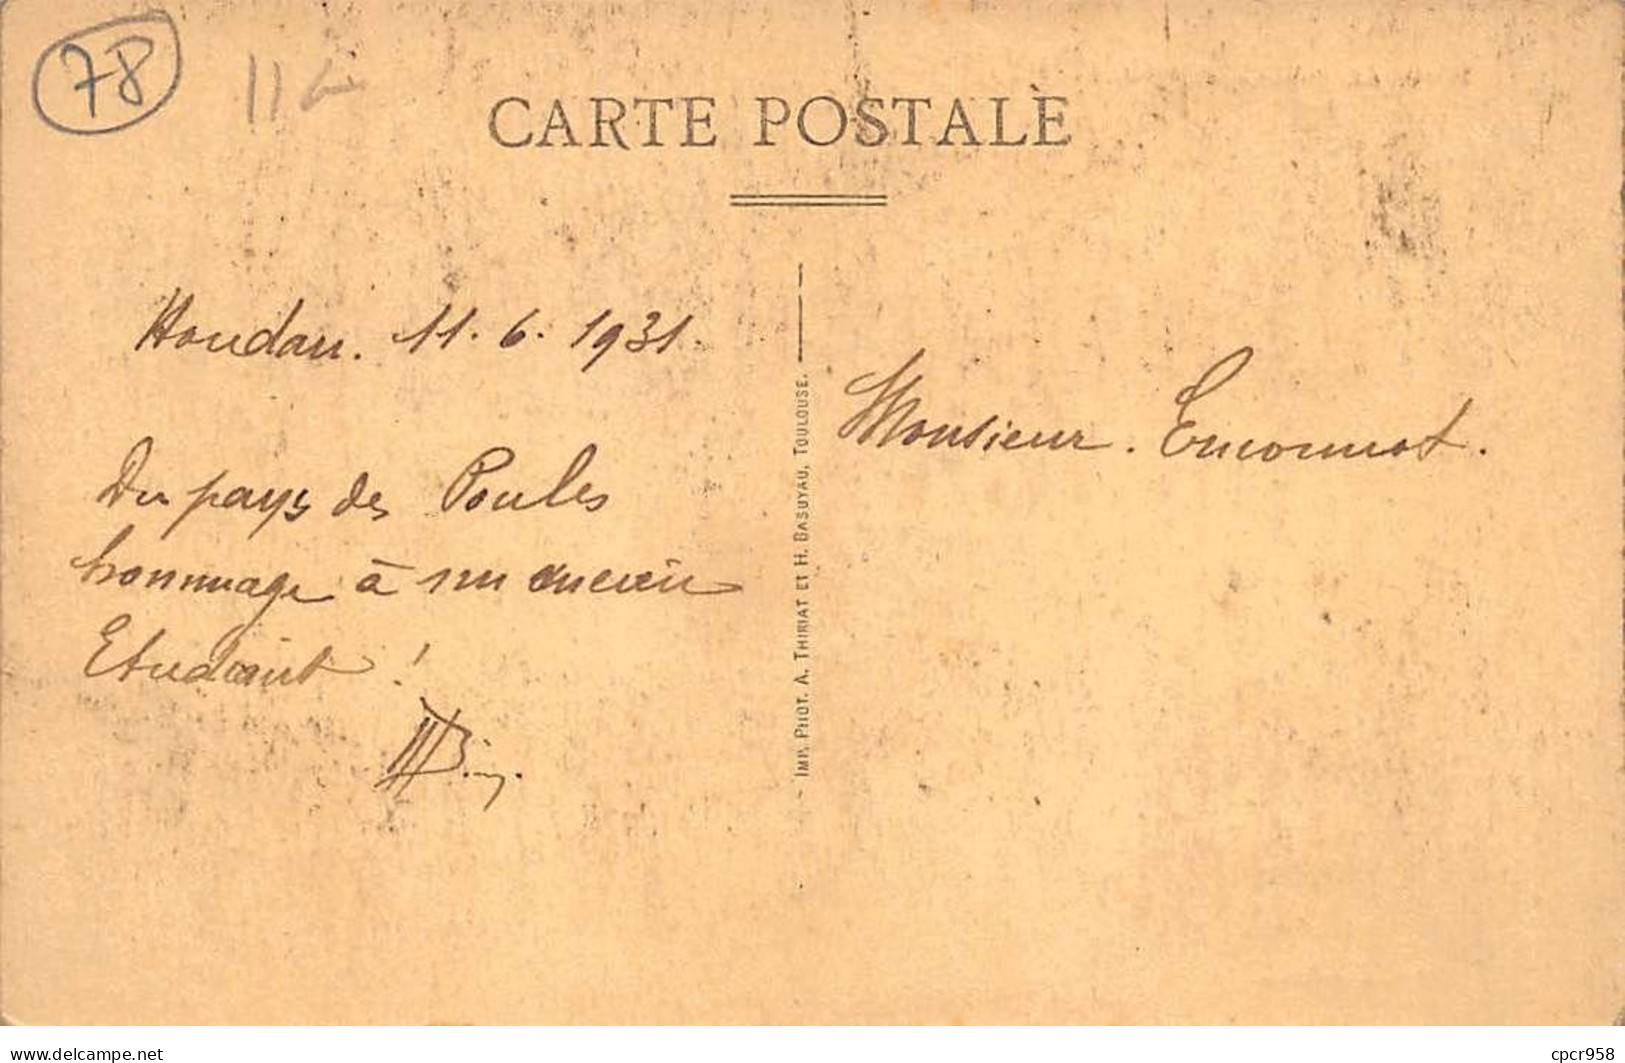 78
CARTE POSTALE
Houdan. 11. 6. 1931.
Du pays des Poules
hommage à un ancien
Etudiant !
IMP. PHOT. A. THIRIAT ET H. BASUYAU, TOULOUSE.
Monsieur.
www.delcampe.net
cpcr958